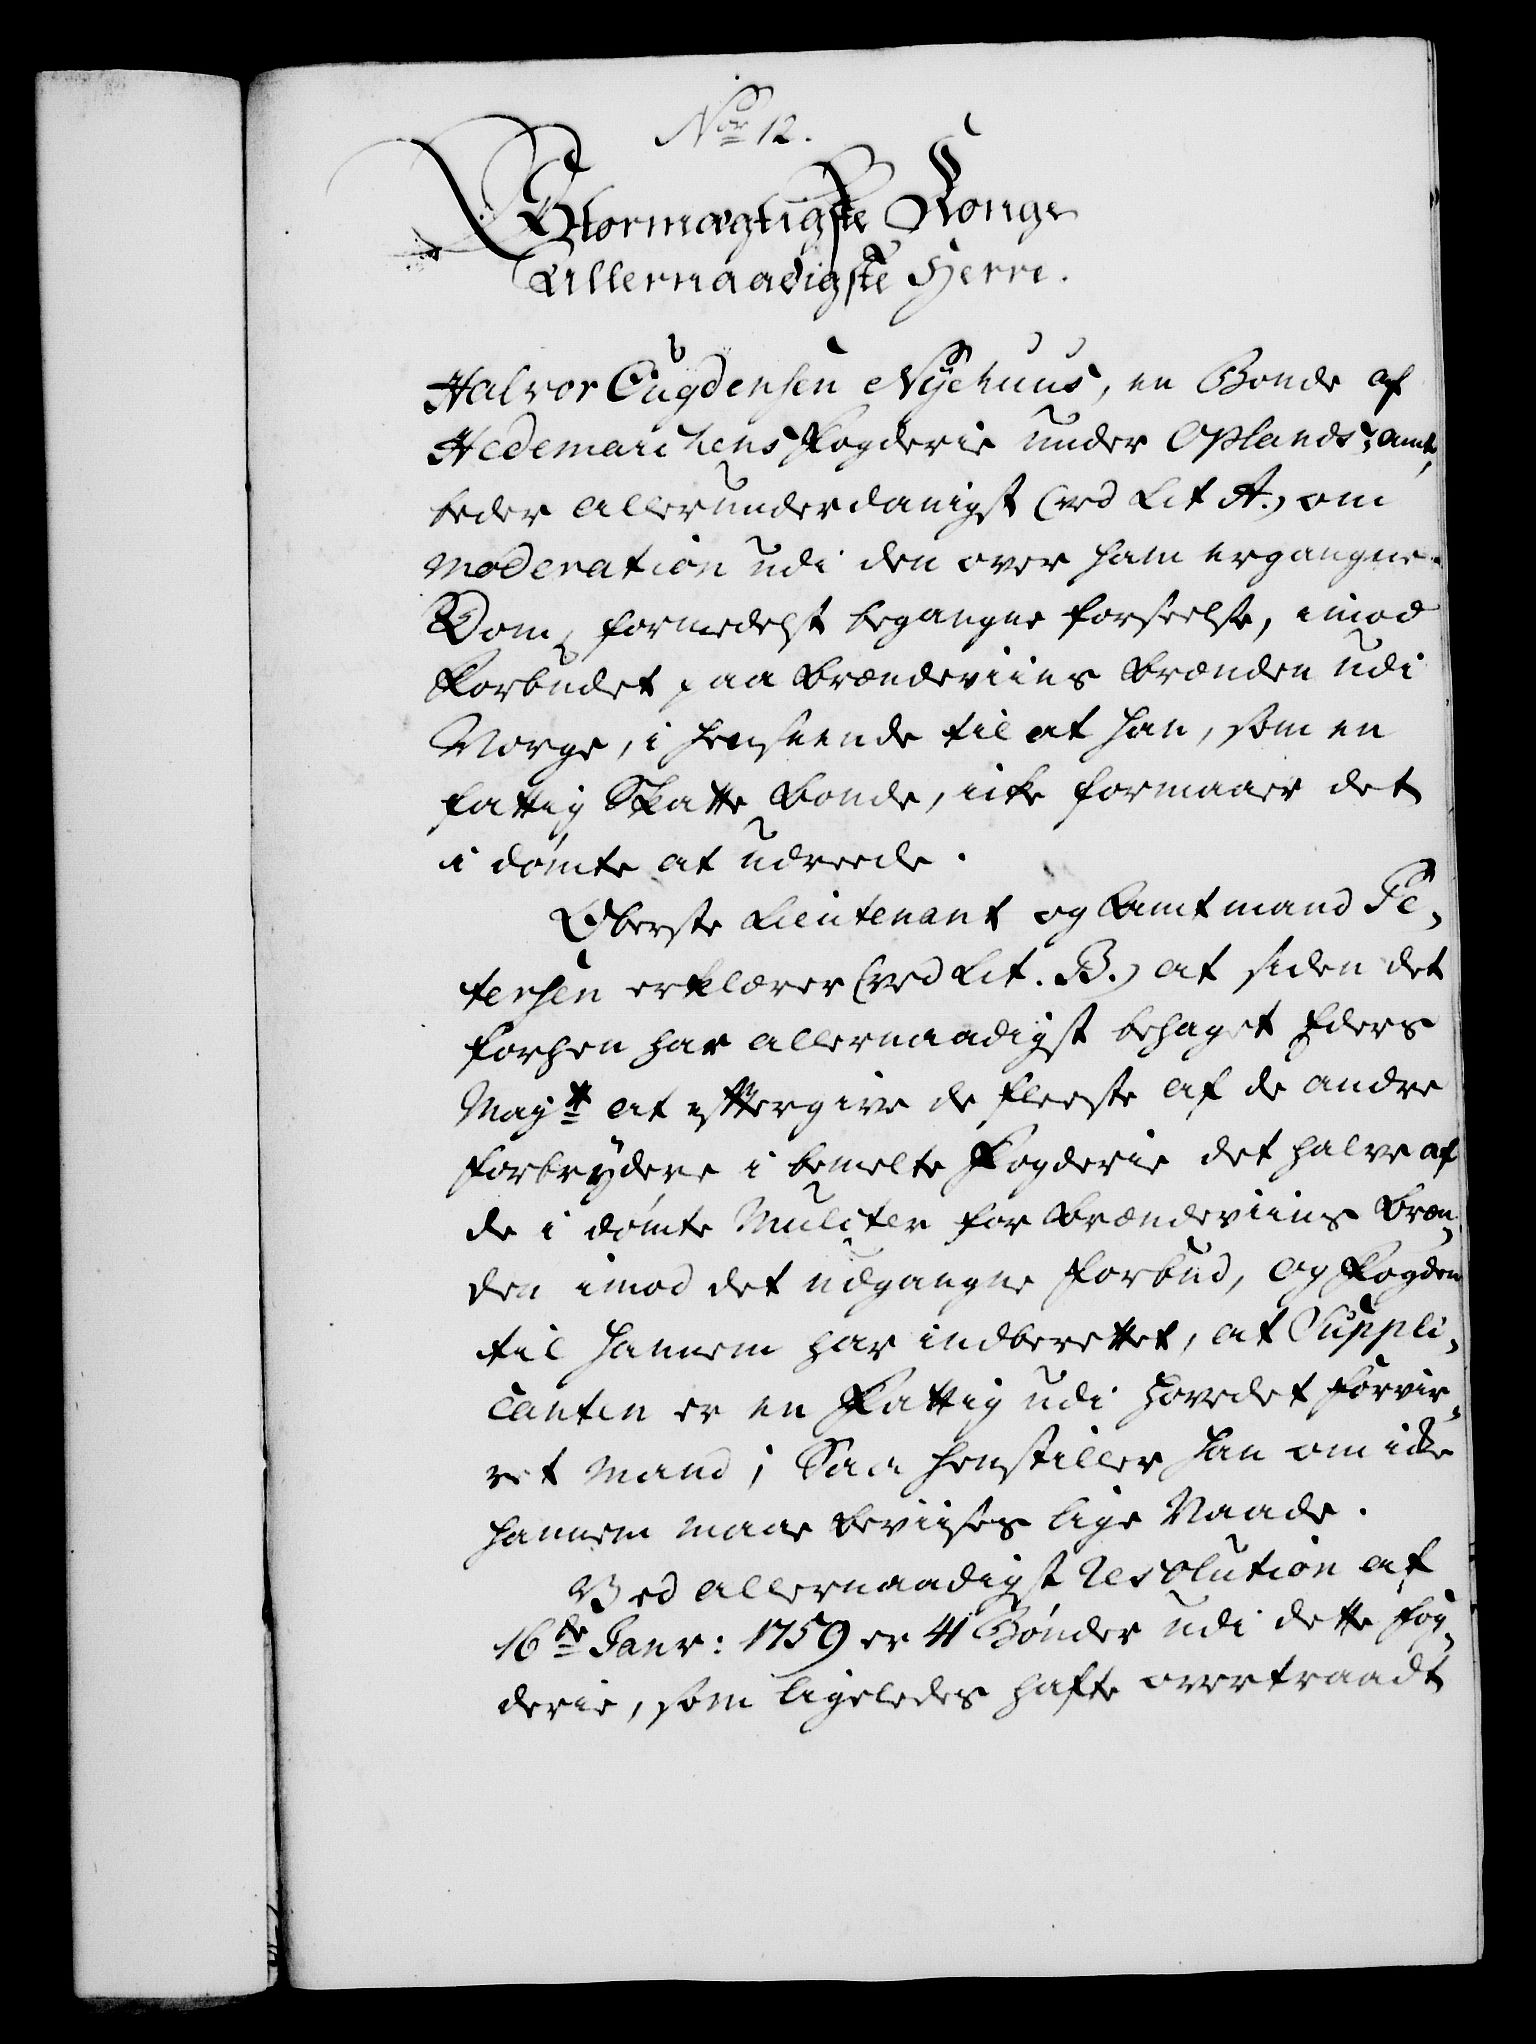 Nor 12.
Stormægtigste Konge
Allernaadigste Herre.
Halvor Eugdensen Nÿehuus, en Bonde af
Hedemarchens Fogderie under Oplands Amt,
beder allerunderdanigst (ved Lit A.) om
Moderation udi den over ham ergangne
Dom, formedelst begangne forseelse, imod
Forbudet paa Brændeviins Brænden udi
Norge, i henseende til at han, som en
fattig Skatte Bonde, icke formaaer det
i dømte at udreede.
Oberste Lieutenant og Amtmand Pe-
tersen erklærer (ved Lit. B.) at siden det
forhen har allernaadigst behaget Eders
Mayt at efftergive de fleeste af de andre
forbrÿdere i bemelte Fogderie det halve af
de i dømte Mulcter for Brændeviins Bræn-
den imod det udgangne forbud, og Fogden
til hannem har indberettet, at Suppli-
canten er en Fattig udi hovedet forvir-
ret Mand; Saa henstiller han om icke
hannem maae beviises lige Naade.
Ved allernaadigst Resolution af
16de Janr: 1759 er 41 Bønder udi dette fog-
derie, som ligeledes hafte overtraadt